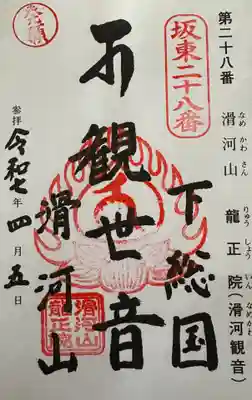 第二十八番 滑河山 龍正院(滑河観音)
なめかわさん りゅうしょういん なめかわ
坂東二十八番
下総国
観世音
滑河山
滑河山
龍正院
参拝 令和七年四月五日